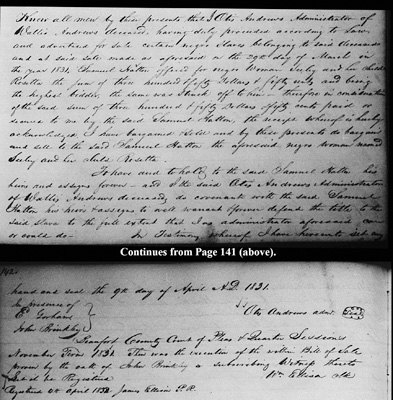 Know all men by these presents that I Otis Andrews Administrator of
Wallis Andrews deceased, having duly proceeded according to Law
and advertised for sale certain negro slaves belonging to said deceased
and at said sale made as aforesaid on the 29th day of March in
the year 1831, Samuel Hatton offered for negro Woman and her child
Rosetta the sum of three hundred & fifty Dollars & fifty cents and being
the highest bidder the same was struck off to him - therefore in consideration
of the said sum of three hundred & fifty Dollars fifty cents paid or
secured to me by the said Samuel Hatton, the receipt whereof is hereby
acknowledged I have bargained sold and by these presents do bargain
and sell to the said Samuel Hatton the aforesaid negro woman named
and her child Rosetta.
To have and to hold to the said Samuel Hatton his
heirs and assigns forever - and I the said Otis Andrews Administrator
of Wallis Andrews deceased, do covenant with the said Samuel
Hatton his heirs & assigns to well warrant & forever defend the title to the
said slaves to the full extent that I as administrator aforesaid can
or could do - In Testimony whereof I have hereunto set my
Continues from Page 141 (above).
142
hand and seal the 9th day of April A.D. 1831.
In presence of
Otis Andrews admr. Seal
John
Beaufort County Court of Pleas & Quarter Sessions
November Term 1831. Then was the execution of the within Bill of Sale
proven by the oath of John a subscribing Witness thereto
Let it be Registered
Registered April 1832 James Ellison P.R.